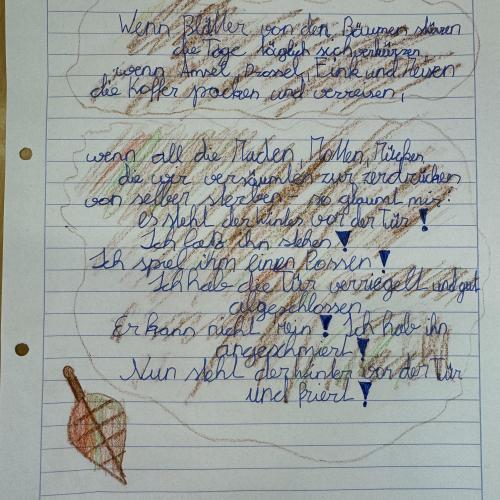 Wenn Blätter von den Bäumen stürzen
die Tage täglich sich verkürzen
wenn Amsel, Drossel, Fink und Meisen
die Koffer packen und verreisen,
wenn all die Maden, Motten, Mücken
die wir versäumten zur zerdrücken
von selber sterben - so glaumt mir:
es steht der Winter vor der Tür!
Ich laß ihn stehen!
Ich spiel ihm einen Possen!
Ich hab die Tür verriegelt und gut
abgeschlossen
Er kann nicht rein! Ich hab ihn
angeschmiert!
Nun steht der Winter vor der Tür
und friert!